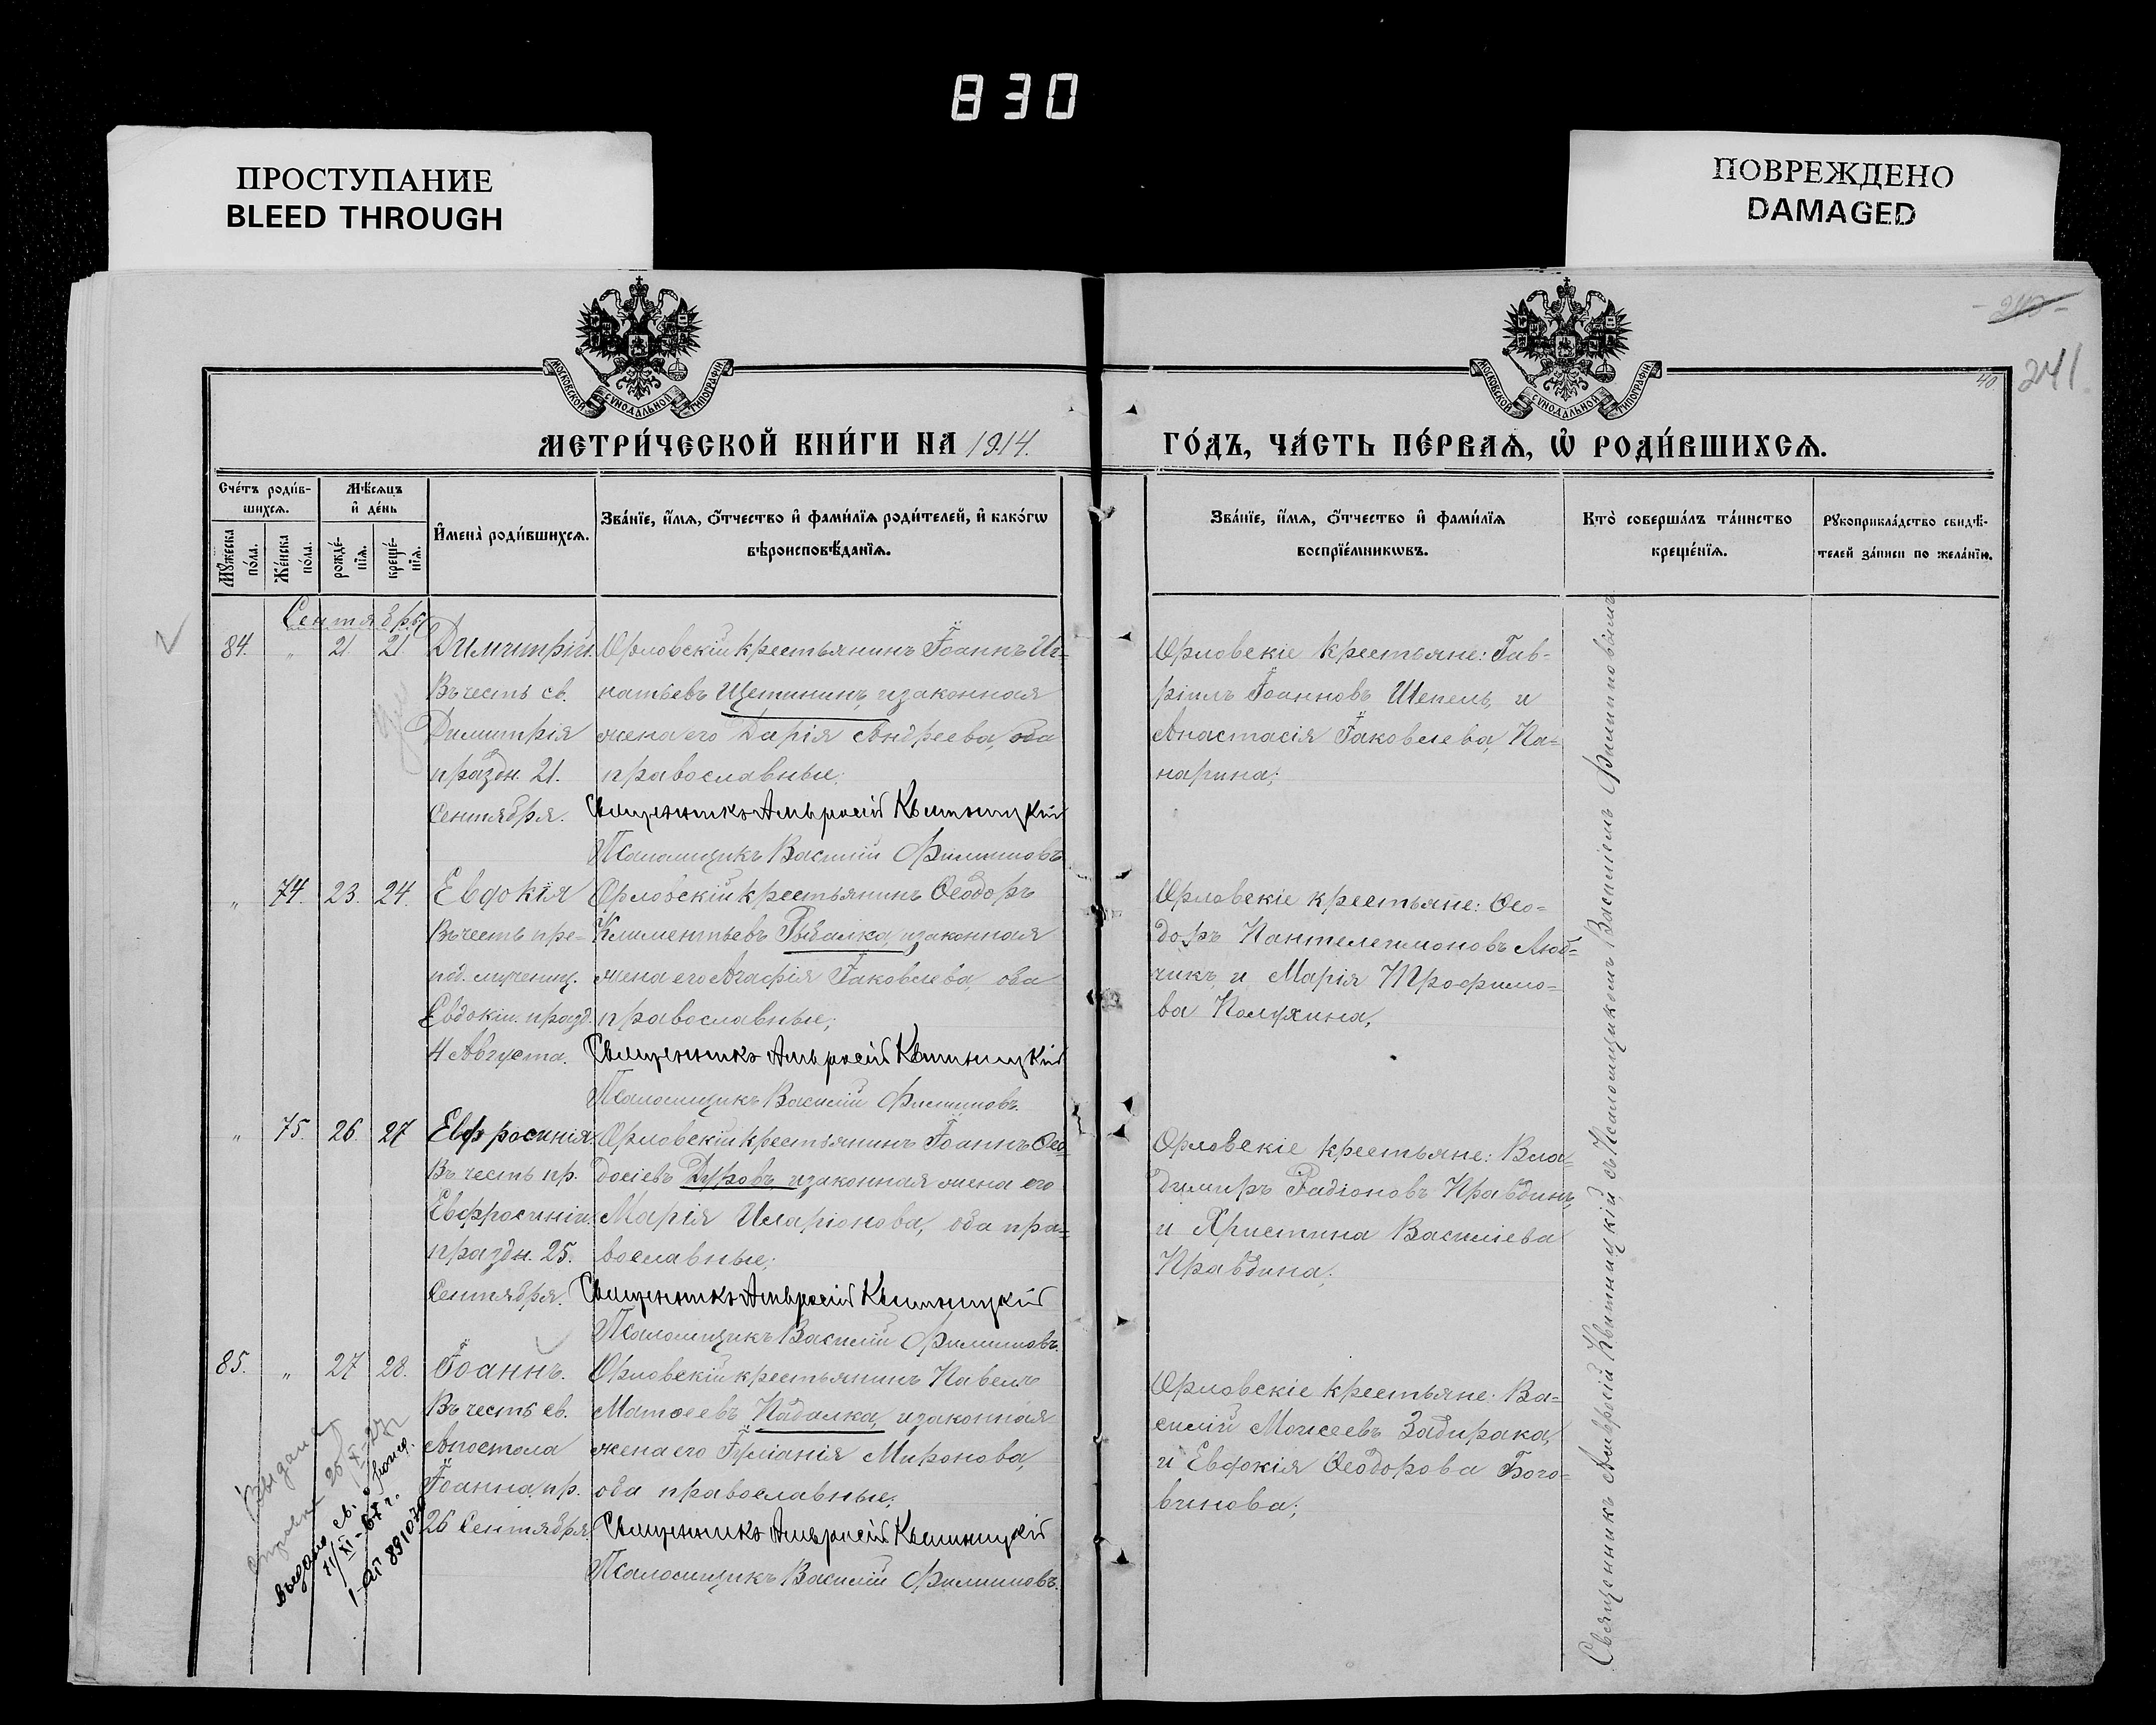 830
ПРОСТУПАНИЕ
BLEED THROUGH
ПОВРЕЖДЕНО
DAMAGED
241
40
МОСКОВСКОЙ СУНОДАЛЬНОЙ ТИПОГРАФІИ
МОСКОВСКОЙ СУНОДАЛЬНОЙ ТИПОГРАФІИ
МЕТРИ́ЧЕСКОЙ КНИ́ГИ НА 1914.
ГО́ДЪ, ЧА́СТЬ ПЕ́РВАѦ, Ѡ҆ РОДИ́ВШИХСѦ.
Сче́тъ роди́в-
шихсѧ.
Мꙋ́жеска по́ла.
Же́нска по́ла.
Мѣ́сѧцъ
и҆ де́нь
рожде́-
нїѧ.
креще́-
нїѧ.
И҆мена̀ роди́вшихсѧ.
Зва́нїе, и҆́мѧ, ѻ҆́тчество и҆ фами́лїѧ роди́телей, и҆ како́гѡ
вѣроисповѣ́данїѧ.
Зва́нїе, и҆́мѧ, ѻ҆́тчество и҆ фами́лїѧ
воспрїе́мникѡвъ.
Кто̀ соверша́лъ та́инство
креще́нїѧ.
Рꙋкоприкла́дство свидѣ́-
телей за́писи по жела́нїю.
Сентябрь
84. " 21. 21. Димитрій.
Въ честь св.
Димитрія
праздн. 21.
Сентября.
Орловскій крестьянинъ Іоаннъ Иг-
натьевъ Щетининъ, и законная
жена его Дарія Андреева, оба
православные;
Священникъ Амвросій Квитницкій
Псаломщикъ Василій Филиповъ
Орловскіе крестьяне: Гав-
ріилъ Іоанновъ Шепель, и
Анастасія Іаковлева Па-
нарина;
" 74. 23. 24. Евдокія
Въ честь пре-
под. мучениц.
Евдокіи. празд.
4 Августа.
Орловскій крестьянинъ Ѳеодоръ
Климентьевъ Рыбалка, и законная
жена его Агафія Іаковлева, оба
православные;
Священникъ Амвросій Квитницкій
Псаломщикъ Василій Филиповъ.
Орловскіе крестьяне: Ѳео-
доръ Пантелеимоновъ Люб-
чикъ, и Марія Трофимо-
ва Полухина;
" 75. 26. 27 Евфросинія.
Въ честь пр.
Евфросиніи.
праздн. 25.
Сентября.
Орловскій крестьянинъ Іоаннъ Ѳео-
досіевъ Дуровъ, и законная жена его
Марія Иларіонова, оба пра-
вославные;
Священникъ Амвросій Квитницкій
Псаломщикъ Василій Филиповъ.
Орловскіе крестьяне: Вла-
димиръ Радіоновъ Правдинъ,
и Христина Василіева
Правдина;
85. " 27 28. Іоаннъ.
Въ честь св.
Апостола
Іоанна. пр.
26 Сентября.
Орловскій крестьянинъ Павелъ
Матѳеевъ Падалка, и законная
жена его Іуліанія Миронова,
оба православные;
Священникъ Амвросій Квитницкій
Псаломщикъ Василій Филиповъ.
Орловскіе крестьяне: Ва-
силій Моисеевъ Задирака,
и Евдокія Ѳеодорова Бого-
винова;
Священникъ Амвросій Квитницкій съ Псаломщикомъ Василіемъ Филиповымъ.
Выдано св. о рожд.
11/XI-67 г.
891070